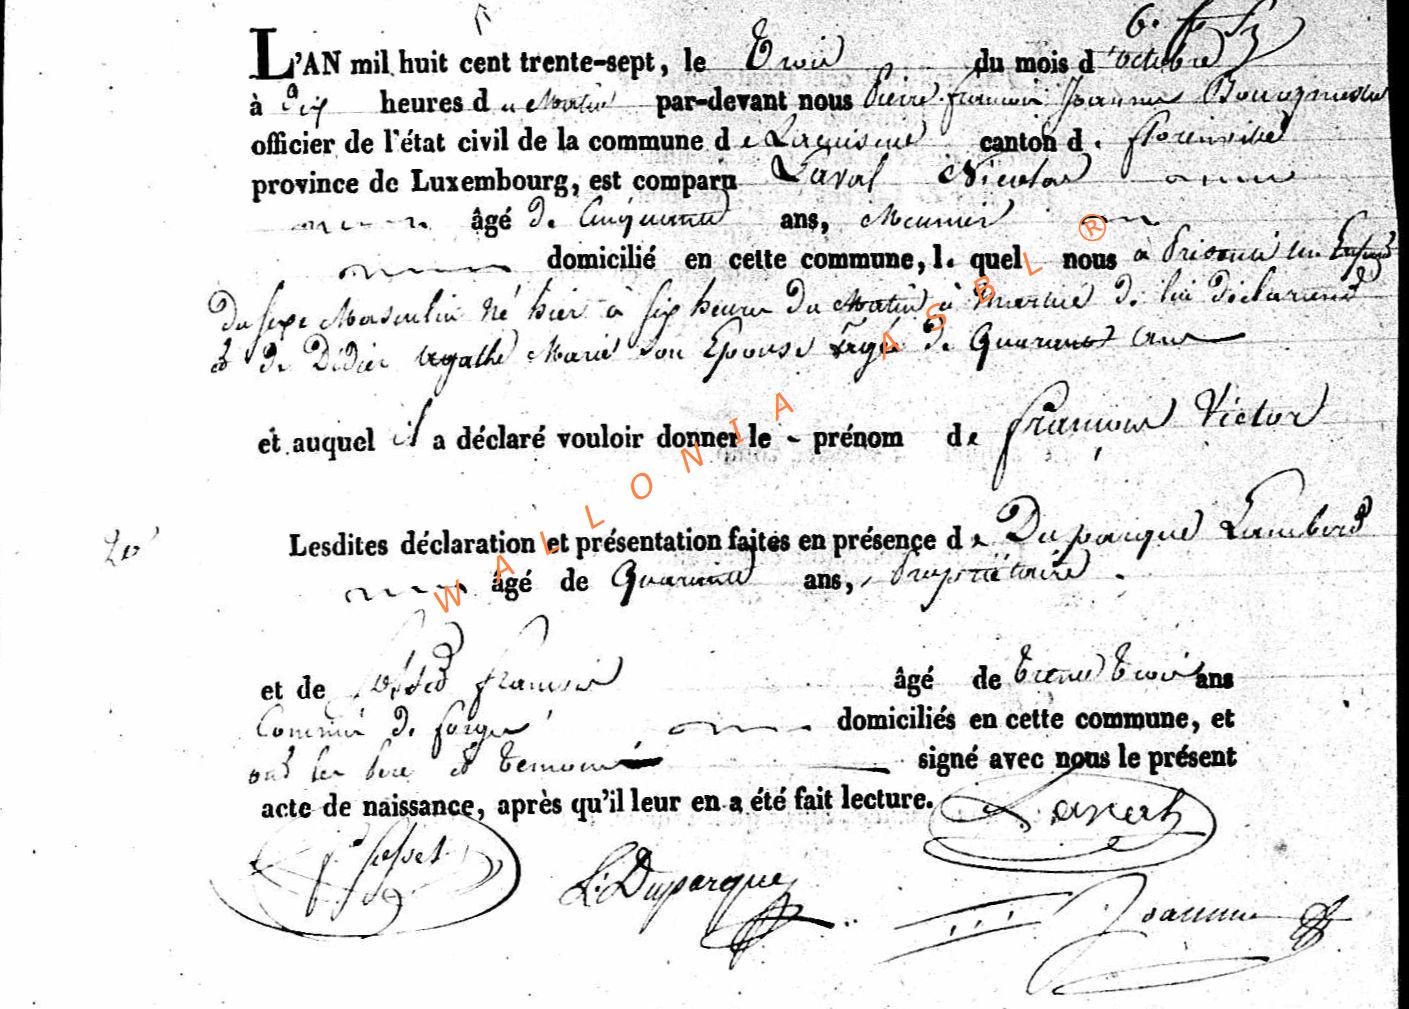 L'AN mil huit cent trente-sept, le Trois du mois d'octobre
à Dix heures du Matin par-devant nous Pierre François Joannes Bourgmestre
officier de l'état civil de la commune de canton d. florenville
province de Luxembourg, est comparu Laval Nicolas
âgé de Cinquante ans, Meunier
domicilié en cette commune, l. quel nous à Présenté un Enfant
Du sexe Masculin Né hier à six heures Du Matin à De lui déclarant
et De Didier Agathe Marie son Epouse agé de Quarante Ans
et auquel il a déclaré vouloir donner le prénom de François Victor
Lesdites déclaration et présentation faites en présence de Duparque Lambert
âgé de Quarante ans, Propriétaire
et de François âgé de Trente Trois ans
Commis De forges domiciliés en cette commune, et
ont les père et Temoins signé avec nous le présent
acte de naissance, après qu'il leur en a été fait lecture.
L. Duparque
Joannes
WALLONIA ASBL ®